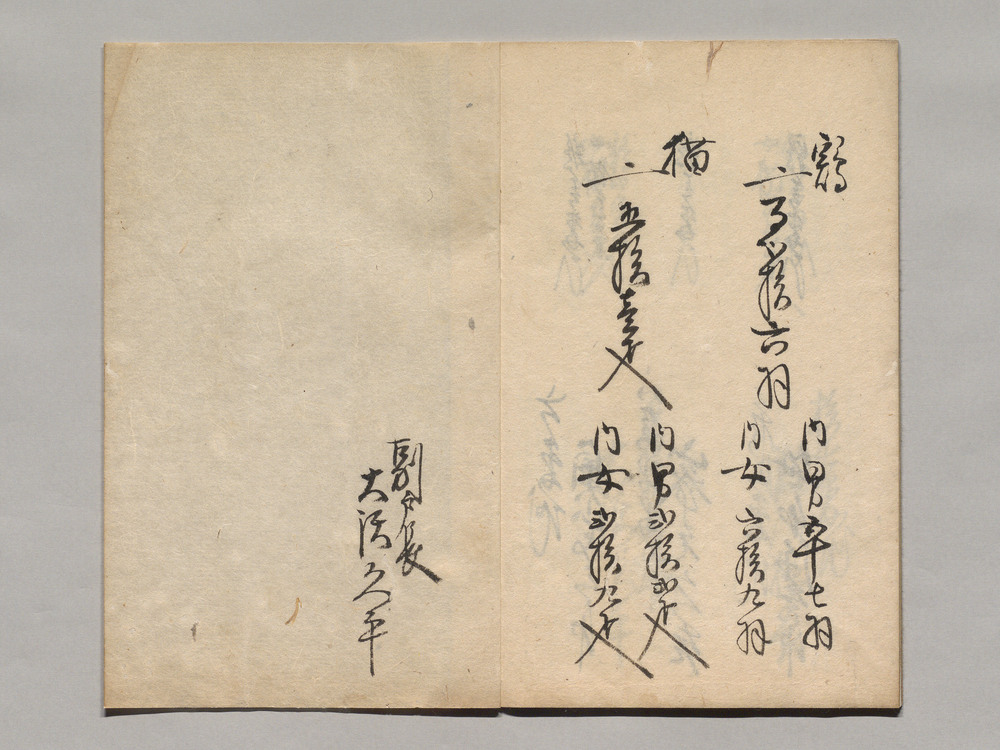 鶏
一 百弐拾六羽
内男五十七羽
内女六拾九羽
猫
一 五拾壱疋
内男弐拾弐疋
内女弐拾九疋
副戸長
大 久平